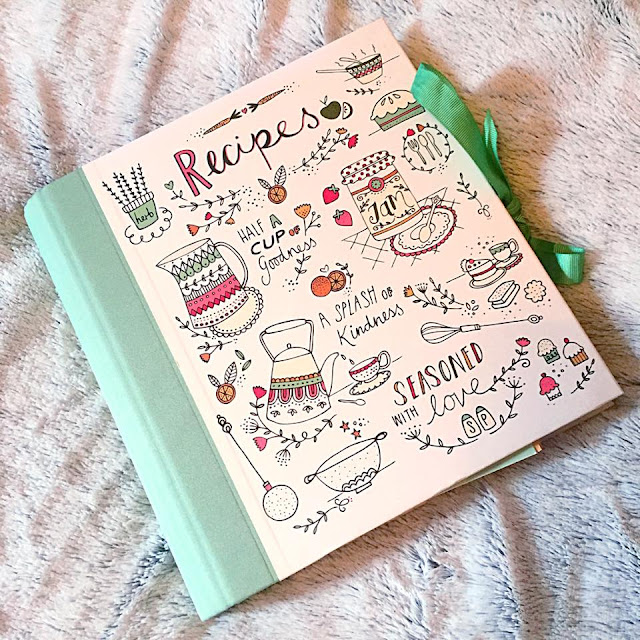 Recipes
herb
Jam
HALF A
CUP OF
Goodness
A SPLASH OF
Kindness
SEASONED
WITH love
S P